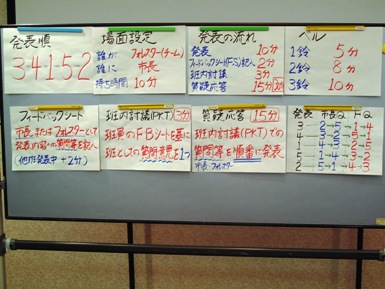 発表順
3-4-1-5-2
場面設定
誰が フォレスター(チーム)
誰に 市長
持ち時間 10分
発表の流れ
発表 10分
フィードバックシート(FS)記入 2分
班内討議 3分
質疑応答 15分
ベル
1鈴 5分
2鈴 8分
3鈴 10分
フィードバックシート
市長またはフォレスターとして
発表内容への質問等を記入
(他班発表中+2分)
班内討議(PKT) 3分
班員のFBシートを基に
班としての質問意見を1つ
質疑応答 15分
班内討議(PKT)での
質問等を順番に発表
市長→フォレスター
発表 市長Q FQ